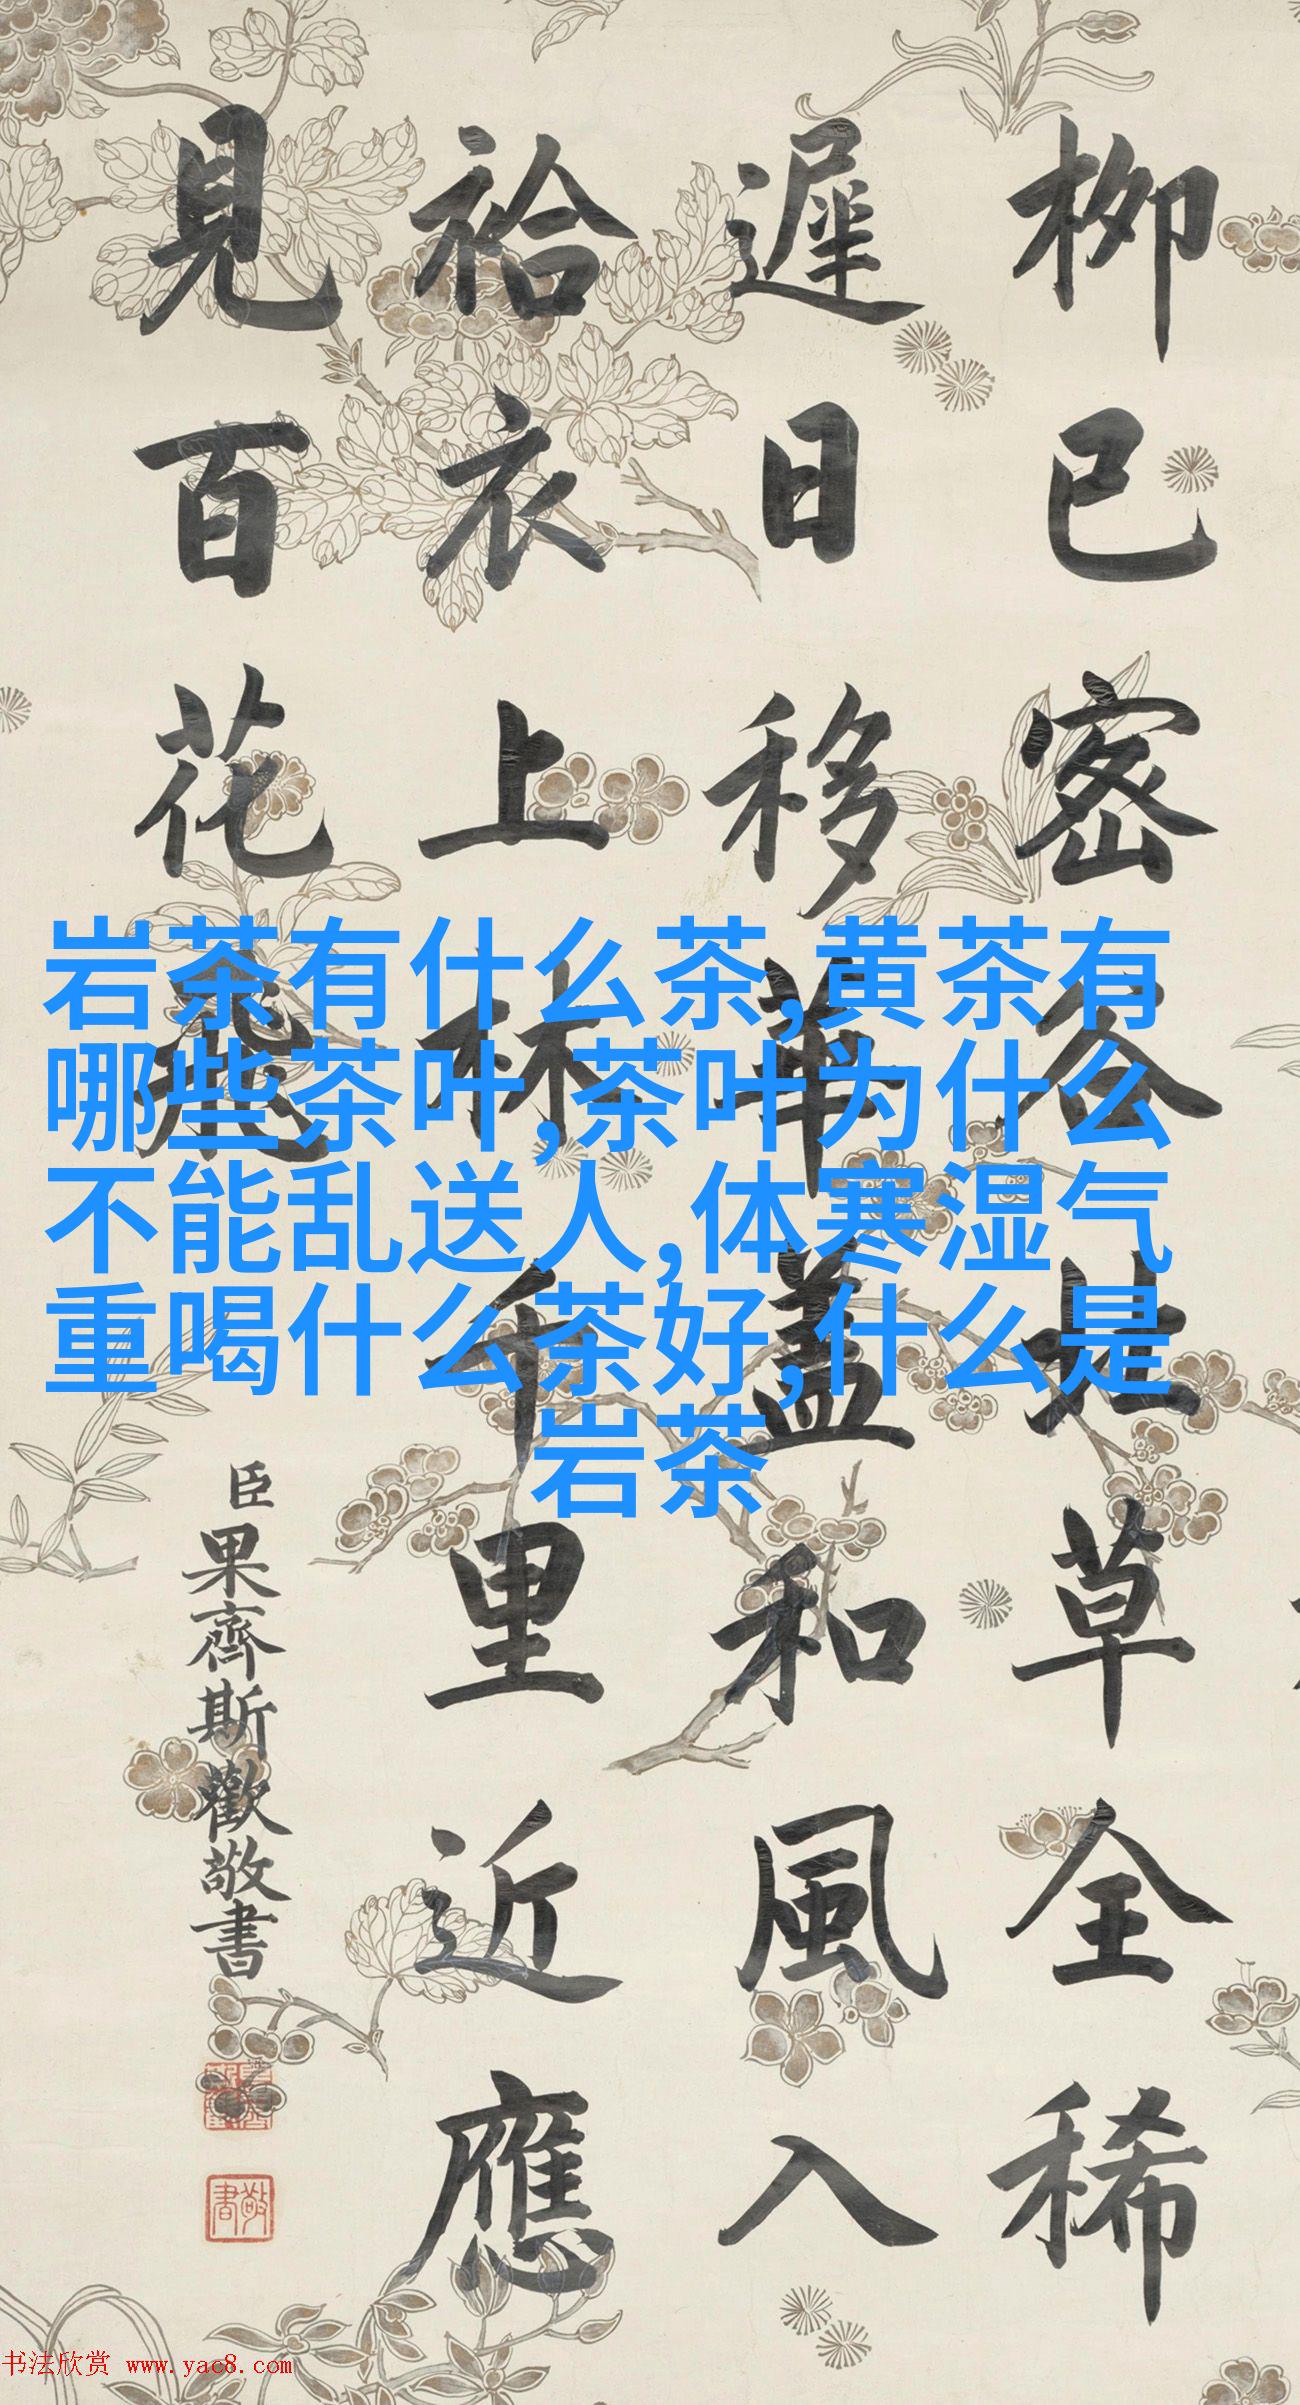 柳已密谷北草全稀
遲日移華蓋和風入
袷衣上林千里近應
見百花飛
臣果齊斯歡敬書
敬書
岩茶有什么茶,黄茶有
哪些茶叶,茶叶为什么
不能乱送人,体寒湿气
重喝什么茶好,什么是
岩茶
书法欣赏 www.yac8.com